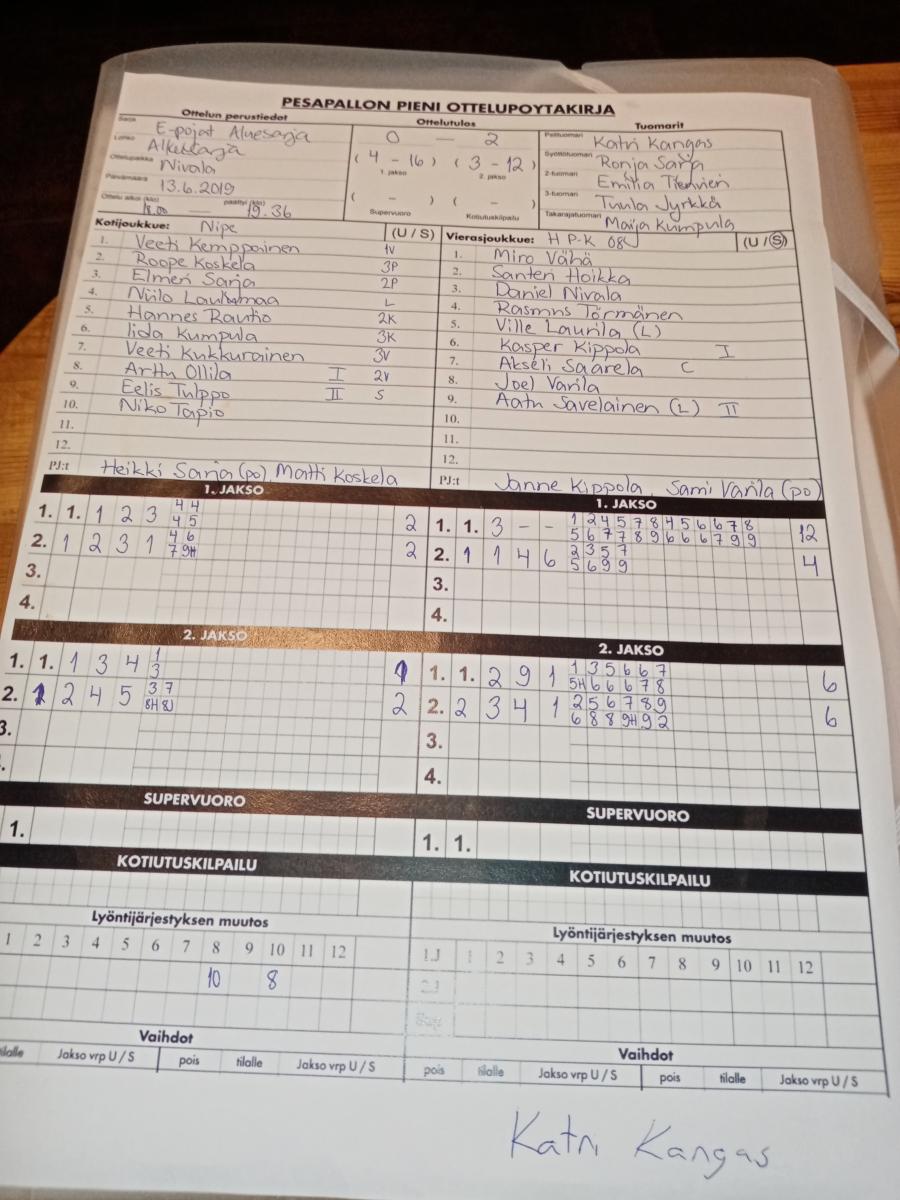 PESÄPALLON PIENI OTTELUPÖYTÄKIRJA
Ottelun perustiedot Ottelutulos Tuomarit
Sarja E-pojat Aluesarja
Lohko Alkusarja
Ottelupaikka Nivala
Päivämäärä 13.6.2019
Ottelu alkoi (klo) 18.00 päättyi (klo) 19.36
0 – 2
(4 – 16) (3 – 12)
1. jakso 2. jakso
( – ) ( – )
Supervuoro Kotiutuskilpailu
Pelituomari Katri Kangas
Syöttötuomari Ronja Sarja
2-tuomari Emilia
3-tuomari Tuula Jyrkkä
Takarajatuomari Maija Kumpula
Kotijoukkue: Nipe (U / S)
1. Veeti Kemppainen 1V
2. Roope Koskela 3P
3. Elmeri Sarja 2P
4. Niilo L
5. Hannes Rautio 2K
6. Iida Kumpula 3K
7. Veeti Kukkurainen 3V
8. Arttu Ollila I 2V
9. Eelis Tulppo II S
10. Niko Tapio
11.
12.
PJ:t Heikki Sarja (po) Matti Koskela
Vierasjoukkue: HP-K 08J (U / S)
1. Miro Vähä
2. Santeri Hoikka
3. Daniel Nivala
4. Rasmus Törmänen
5. Ville Laurila (L)
6. Kasper Kippola I
7. Akseli Saarela C
8. Joel Varila
9. Aatu Savelainen (L) II
10.
11.
12.
PJ:t Janne Kippola, Sami Varila (po)
1. JAKSO
1. 1. 1 2 3 4 4 2
4 5
2. 1 2 3 1 4 6 2
7 9H
3.
4.
1. JAKSO
1. 1. 3 - - 1 2 4 5 7 8 4 5 6 6 7 8 12
5 6 7 7 8 9 6 6 6 7 9 9
2. 1 1 4 6 2 3 5 7 4
5 6 9 9
3.
4.
2. JAKSO
1. 1. 1 3 4 1 1
3
2. 2 4 5 3 7 2
8H 8J
3.
2. JAKSO
1. 1. 2 9 1 1 3 5 6 6 7 6
5H 6 6 6 7 8
2. 2 3 4 1 2 5 6 7 8 9 6
6 8 8 9H 9 2
3.
4.
SUPERVUORO
1.
SUPERVUORO
1. 1.
KOTIUTUSKILPAILU
KOTIUTUSKILPAILU
Lyöntijärjestyksen muutos
1 2 3 4 5 6 7 8 9 10 11 12
10 8
Lyöntijärjestyksen muutos
1.J 1 2 3 4 5 6 7 8 9 10 11 12
2.J
Sup
Vaihdot
tilalle Jakso vrp U / S pois tilalle Jakso vrp U / S
Vaihdot
pois tilalle Jakso vrp U / S pois tilalle Jakso vrp U / S
Katri Kangas